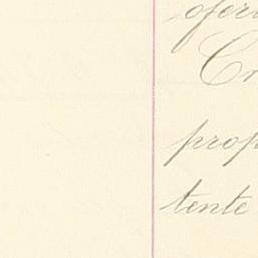 oferi
Co
prop
tente